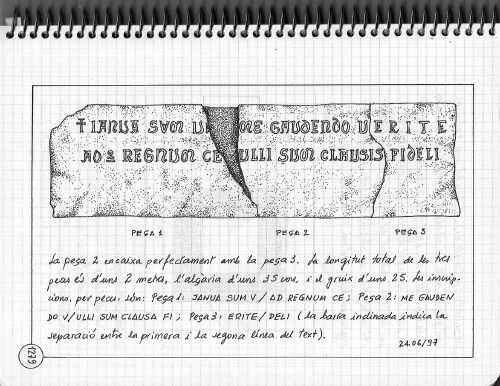 † IANUA SUM U ME GAUDENDO UERITE
AD REGNUM CE ULLI SUM CLAUSIS FIDELI
PEÇA 1 PEÇA 2 PEÇA 3
La peça 2 encaixa perfectament amb la peça 3. La longitut total de les tres
peces és d'uns 2 metres, l'alçària d'uns 35 cms, i el gruix d'uns 25. Les inscrip-
cions, per peces, són: Peça 1: JANUA SUM V/AD REGNUM CE; Peça 2: ME GAUDEN
DO V/ULLI SUM CLAUSA FI; Peça 3: ERITE/DELI (la barra inclinada indica la
separació entre la primera i la segona línea del text).
24.06/97
1279